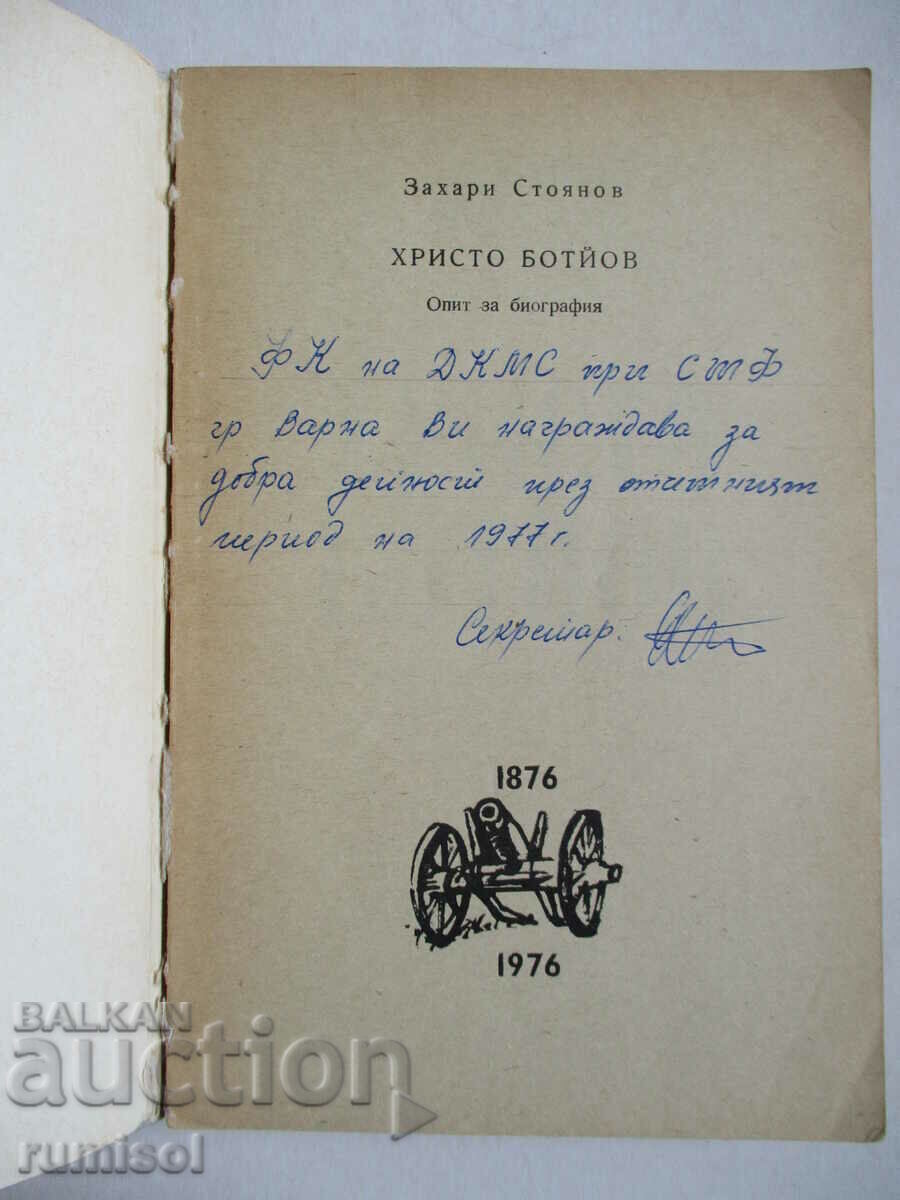 Захари Стоянов
ХРИСТО БОТЙОВ
Опит за биография
ФК на ДКМС при СТФ
гр Варна Ви награждава за
добра дейност през отчетният
период на 1977 г.
Секретар:
1876
1976
BALKAN
auction
rumisol